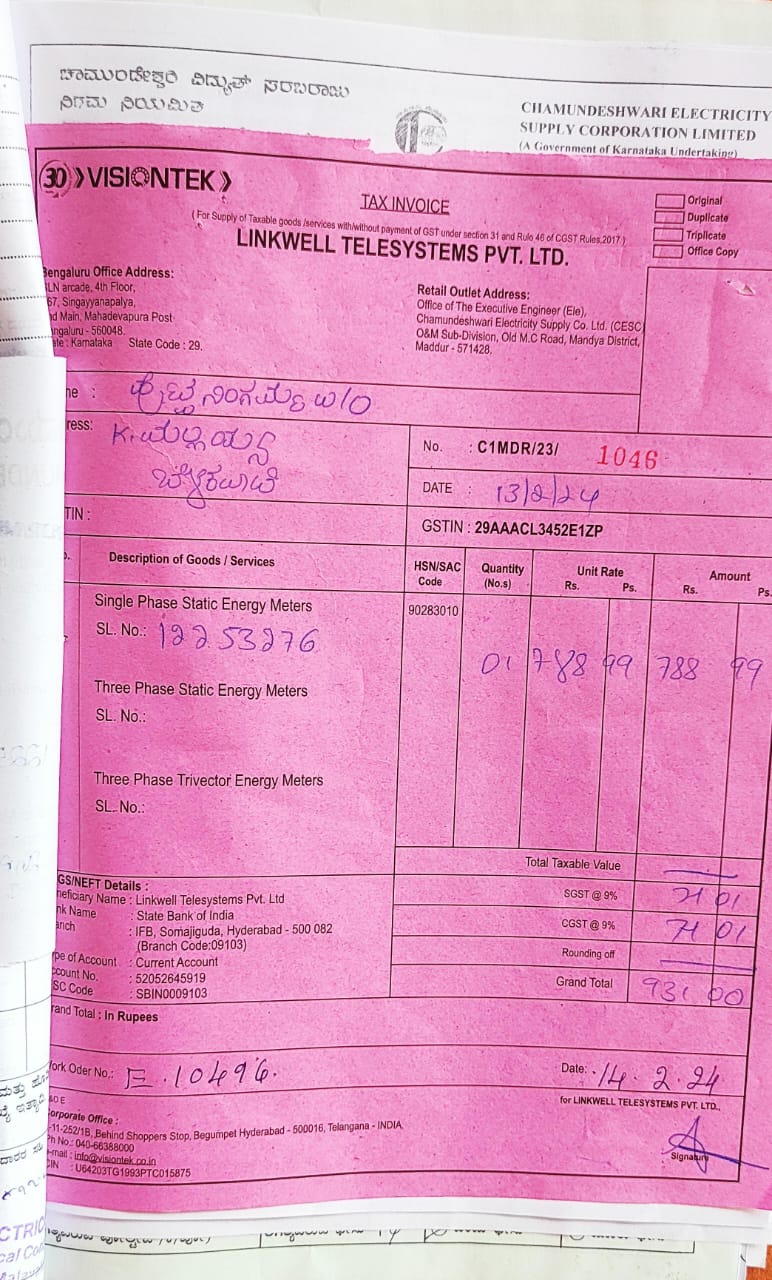 ಚಾಮುಂಡೇಶ್ವರಿ ವಿದ್ಯುತ್ ಸರಬರಾಜು
ನಿಗಮ ನಿಯಮಿತ
CHAMUNDESHWARI ELECTRICITY
SUPPLY CORPORATION LIMITED
(A Government of Karnataka Undertaking)
30 VISIONTEK
TAX INVOICE
(For Supply of Taxable goods /services with/without payment of GST under section 31 and Rule 46 of CGST Rules,2017)
LINKWELL TELESYSTEMS PVT. LTD.
Original
Duplicate
Triplicate
Office Copy
Bengaluru Office Address:
LN arcade, 4th Floor,
67, Singayyanapalya,
d Main, Mahadevapura Post
ngaluru - 560048.
ate : Karnataka State Code : 29.
Retail Outlet Address:
Office of The Executive Engineer (Ele),
Chamundeshwari Electricity Supply Co. Ltd. (CESC
O&M Sub-Division, Old M.C Road, Mandya District,
Maddur - 571428.
me :
ress:
No. : C1MDR/23/ 1046
DATE : 13/2/24
TIN :
GSTIN : 29AAACL3452E1ZP
Description of Goods / Services
HSN/SAC Code
Quantity (No.s)
Unit Rate
Rs. Ps.
Amount
Rs. Ps.
Single Phase Static Energy Meters
90283010
SL. No.: 12253276
01 788 99 788 99
Three Phase Static Energy Meters
SL. No.:
Three Phase Trivector Energy Meters
SL. No.:
Total Taxable Value
SGST @ 9% 71 01
CGST @ 9% 71 01
Rounding off
Grand Total 931 00
GS/NEFT Details :
neficiary Name : Linkwell Telesystems Pvt. Ltd
nk Name : State Bank of India
anch : IFB, Somajiguda, Hyderabad - 500 082
(Branch Code:09103)
pe of Account : Current Account
ccount No. : 52052645919
SC Code : SBIN0009103
rand Total : In Rupees
Work Oder No,: E.10496.
Date: 14.2.24
for LINKWELL TELESYSTEMS PVT. LTD.,
& O E
orporate Office :
-11-252/1B, Behind Shoppers Stop, Begumpet Hyderabad - 500016, Telangana - INDIA
h No.: 040-66388000
-mail : info@visiontek.co.in
IN : U64203TG1993PTC015875
Signature